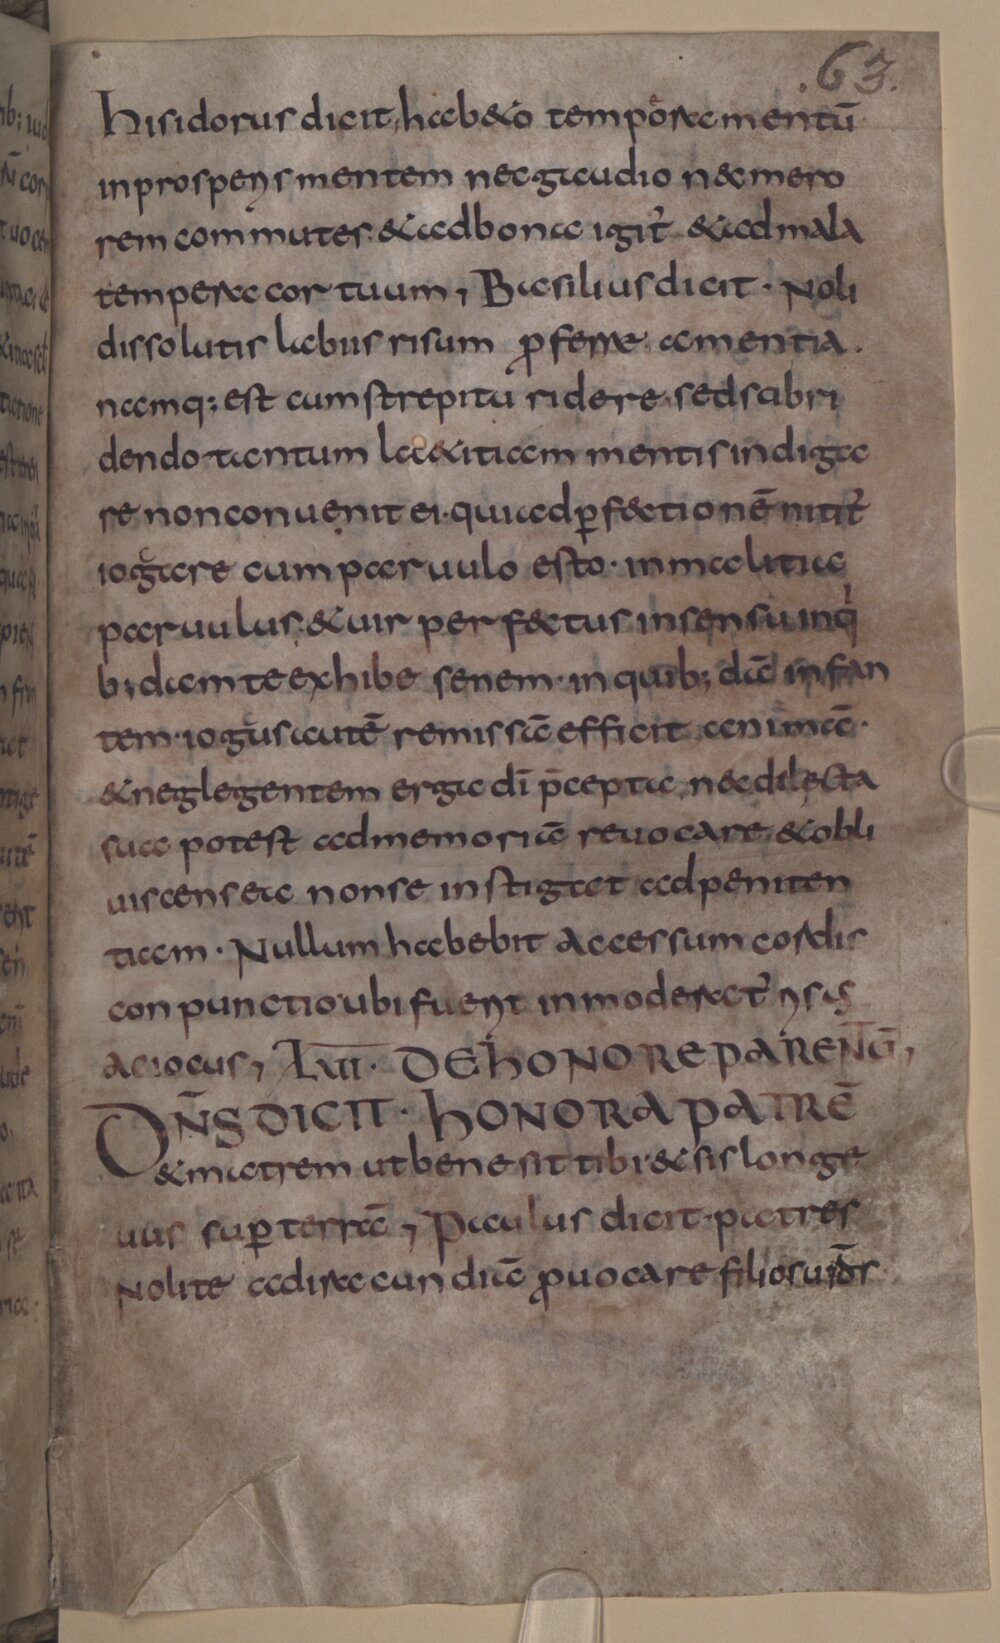 .63.
hisidorus dicit, habeto temperamentū
in prosperis mentem nec gaudio nec mero
rem commutes. & ad bona igit̄ & ad mala
tempera cor tuum, Basilius dicit. Noli
dissolutis labiis risum ꝓferre. amentia.
namq; est cum strepitu ridere. sed subri
dendo tantum laetitiam mentis indica
re non conuenit ei. qui ad ꝑfectionē nitit̄
iogare cum paruulo esto. in malitia
paruulus. & uir perfectus in sensu inqui
b; dam te exhibe senem. in quib; dā infan
tem. iogus autē remissā efficit animā.
& neglegentem erga dī p̄cepta. nec dilecta
sua potest ad memoriā reuocare. & obli
uiscens ea non se instigat ad peniten
tiam. Nullum habebit accessum cordis
conpunctio ubi fuerit inmoderat̄ risus
ac iocus, LVII. DE hONORE PARENTŪ,
DN̄S DICIT. hONORA PATRĒ
& matrem ut bene sit tibi. & sis longe
uus suꝑ terrā, Paulus dicit. patres
Nolite ad iracundiā ꝓuocare filios ur̄os